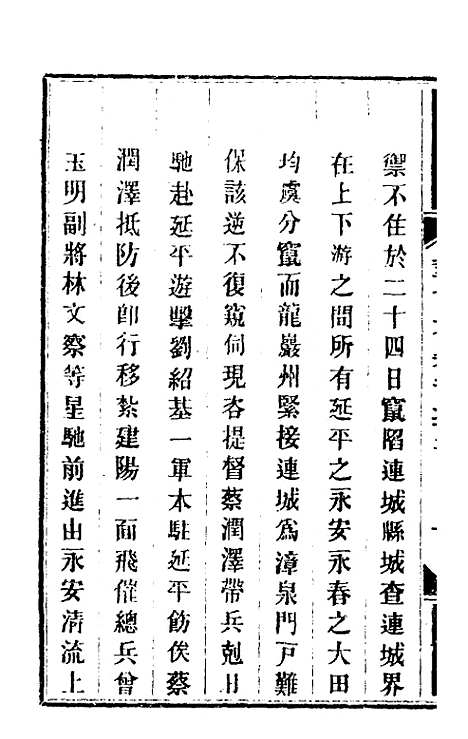 禦不住於二十四日竄陷連城縣城查連城界
在上下游之間所有延平之永安永春之大田
均虞分竄而龍巖州緊接連城為漳泉門戶難
保該逆不復窺伺現咨提督蔡潤澤帶兵剋日
馳赴延平遊擊劉紹基一軍本駐延平飭俟蔡
潤澤抵防後卽行移紮建陽一面飛催總兵曾
玉明副將林文察等星馳前進由永安清流上